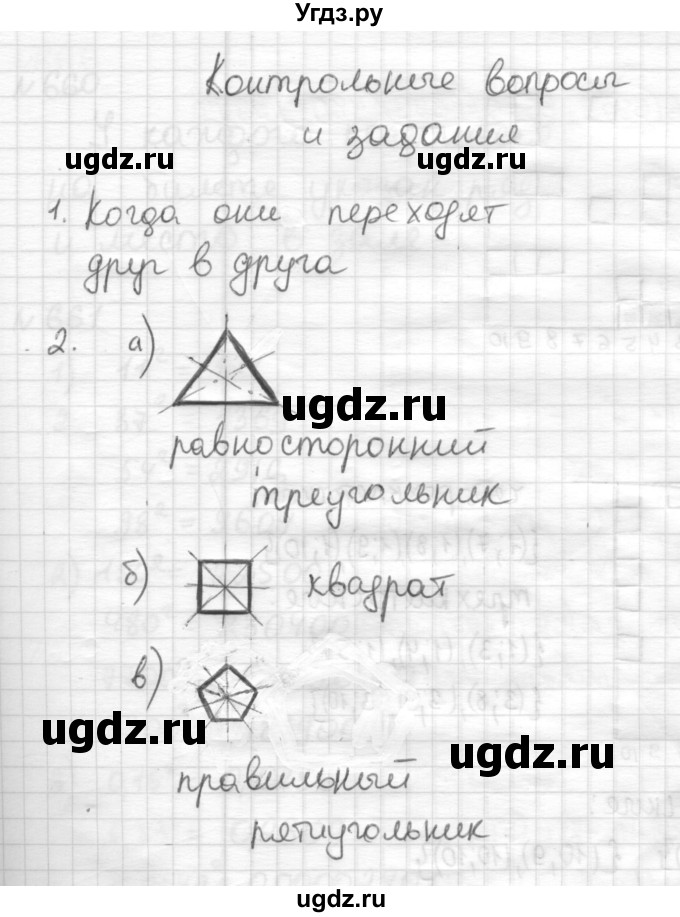 Угдз.ру
Контрольные вопросы
и задания
ugdz.ru ugdz.ru
1. Когда они переходят
друг в друга
2. а)
ugdz.ru
равносторонний
треугольник
б) квадрат
в)
ugdz.ru
ugdz.ru
правильный
пятиугольник
ugdz.ru